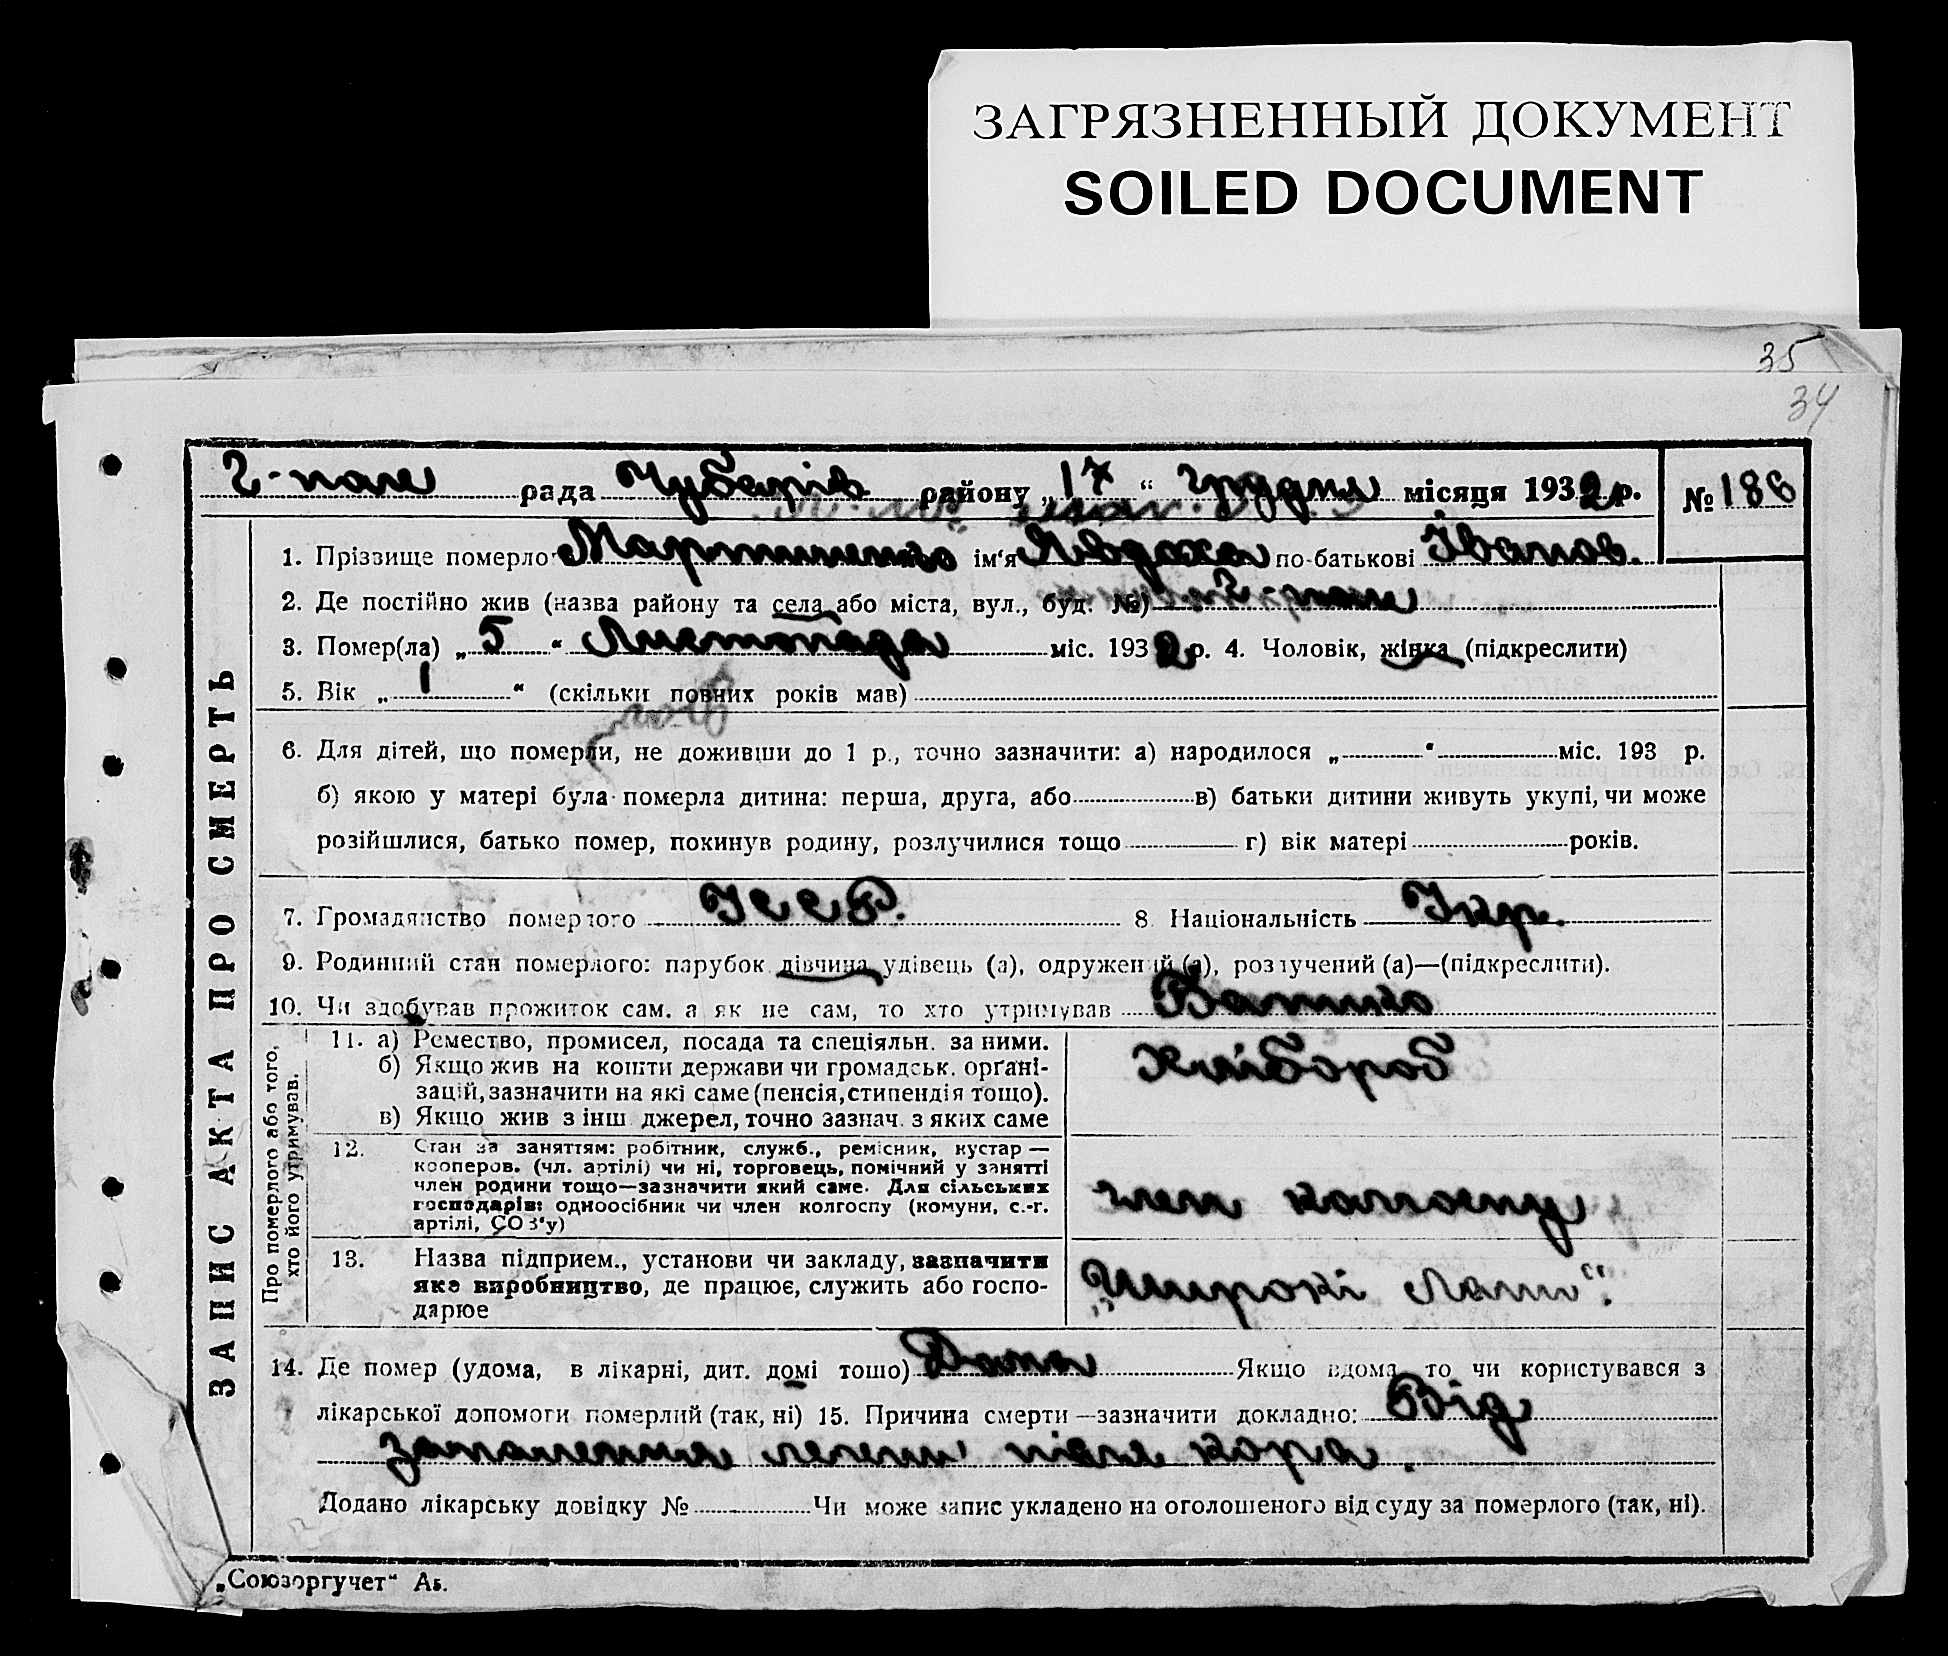 ЗАГРЯЗНЕННЫЙ ДОКУМЕНТ
SOILED DOCUMENT
35
34
Г-поле рада Чубарів району „17“ Грудня місяця 1932 р. № 186
ЗАПИС АКТА ПРО СМЕРТЬ
1. Прізвище померло Мартиненко ім‘я Явдоха по-батькові Іванов.
2. Де постійно жив (назва району та села або міста, вул., буд. №) Г-поле
3. Помер(ла) „5“ Листопада міс. 1932 р. 4. Чоловік, жінка (підкреслити)
5. Вік „1“ (скільки повних років мав)
6. Для дітей, що померли, не доживши до 1 р., точно зазначити: а) народилося „ “ міс. 193 р.
б) якою у матері була померла дитина: перша, друга, або в) батьки дитини живуть укупі, чи може
розійшлися, батько помер, покинув родину, розлучилися тощо г) вік матері років.
7. Громадянство померлого УССР. 8 Національність Укр.
9. Родинний стан померлого: парубок дівчина удівець (а), одружений (а), розлучений (а)—(підкреслити).
10. Чи здобував прожиток сам. а як не сам, то хто утримував Батько
Про померлого або того,
хто його утримував.
11. а) Ремество, промисел, посада та спеціяльн. за ними. Хлібороб
б) Якщо жив на кошти держави чи громадськ. орґані-
зацій, зазначити на які саме (пенсія, стипендія тощо).
в) Якщо жив з інш. джерел, точно зазнач. з яких саме
12. Стан за заняттям: робітник, служб., ремісник, кустар —
кооперов. (чл. артілі) чи ні, торговець, помічний у занятті
член родини тощо—зазначити який саме. Для сільських член колгоспу
господарів: одноосібник чи член колгоспу (комуни, с.-г.
артілі, СОЗ‘у)
13. Назва підприєм., установи чи закладу, зазначити
яке виробництво, де працює, служить або госпо- „Широкі Лани“.
дарює
14. Де помер (удома, в лікарні, дит. домі тощо) Дома Якщо вдома, то чи користувався з
лікарської допомоги померлий (так, ні) 15. Причина смерти —зазначити докладно: Від
запалення легень після кора.
Додано лікарську довідку № Чи може запис укладено на оголошеного від суду за померлого (так, ні).
„Союзоргучет“ А5.